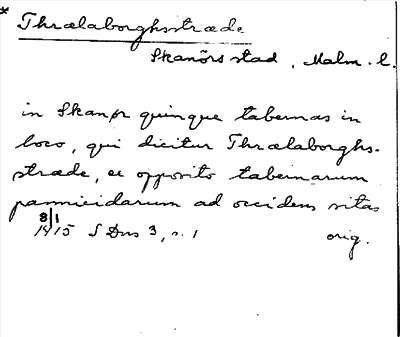 * Thrælaborghsstræde
Skanörs stad, Malm. l.
in Skanør quinque tabernas in
loco, qui dicitur Thrælaborghs-
stræde, ex opposito tabernarum
pannicidarum ad occidens sitas
8/1 1415 SDns 3, s. 1 orig.